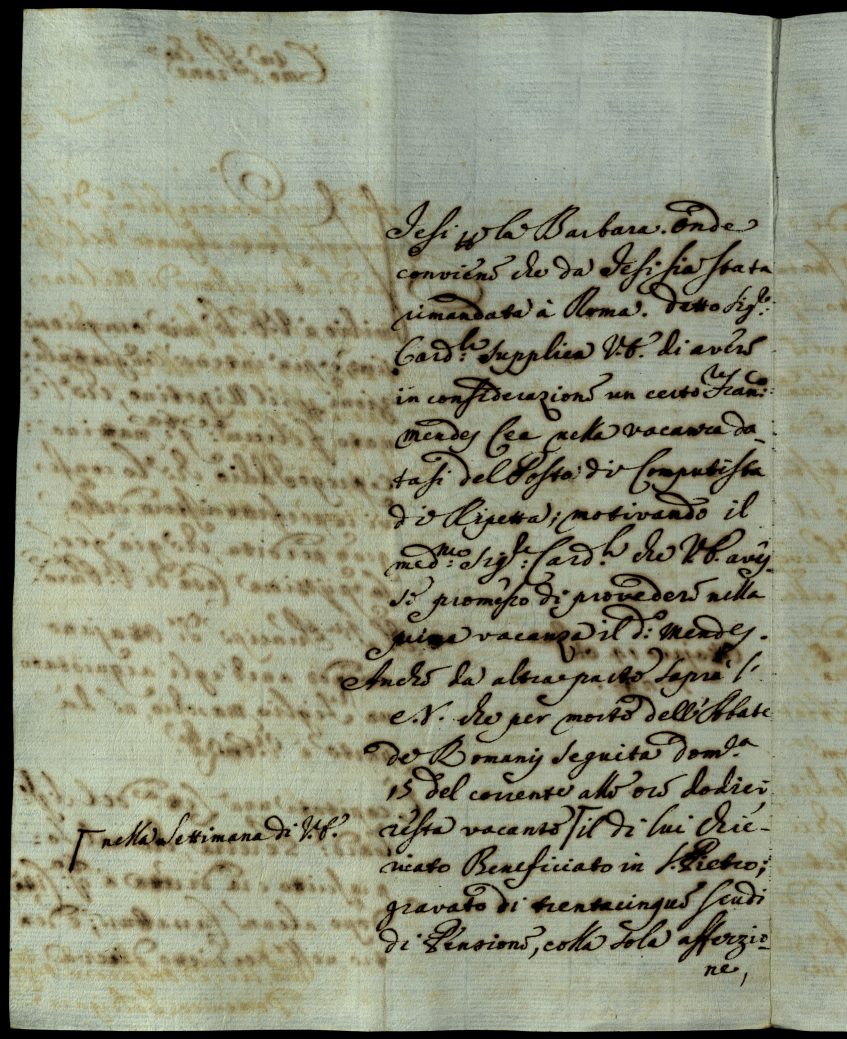 Jesi p la Barbara. Onde
conviene che da Jesi sia stata
rimandata à Roma. detto Sig.re
Card.le supplica V.E. di avere
in considerazione un certo Fran.co
Mendes Cea nella vacanza da-
tasi del Posto di Computista
di Ripetta; motivando il
med.mo Sig.re Card.le che V.E. avęs-
se promesso di provedere nella
prima vacanza il d.o Mendes.
Anche da altra parte saprà l'
E.V. che per morte dell'Abbate
de Romanis seguita dom.ca
15 del corrente alle ore dodeci
resta vacante ⌈ il di lui Chie-
⌈ nella Settimana di V.E.
ricato Beneficiato in S. Pietro;
gravato di trentacinque scudi
di Pensione, colla sola affezio-
ne,